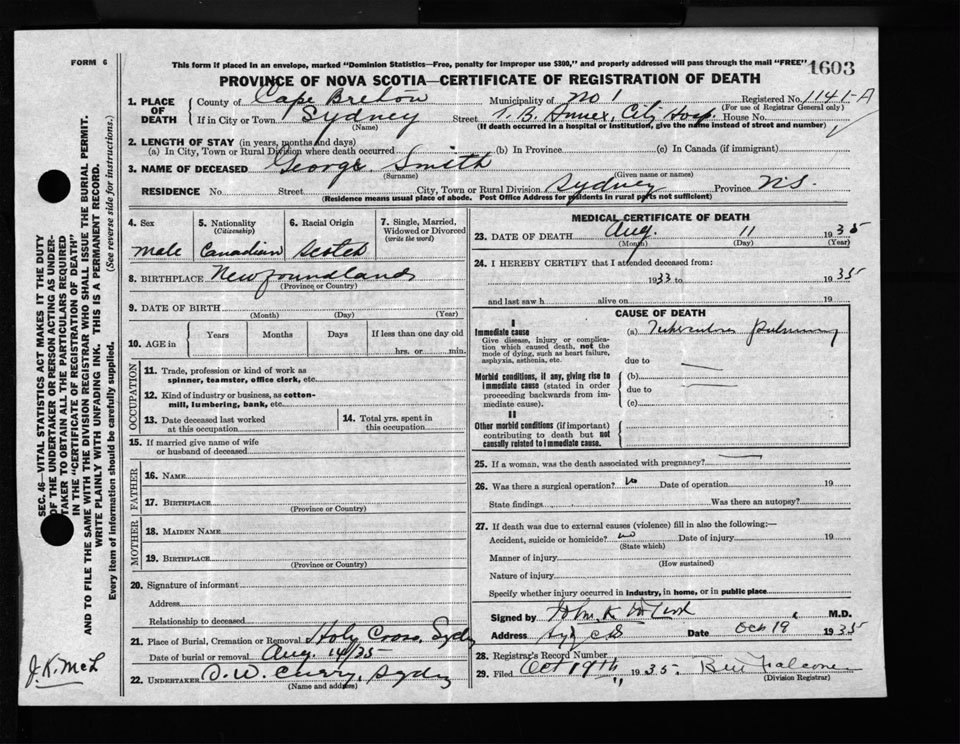 FORM 6
This form if placed in an envelope, marked "Dominion Statistics—Free, penalty for improper use $300," and properly addressed will pass through the mail "FREE"
1603
PROVINCE OF NOVA SCOTIA—CERTIFICATE OF REGISTRATION OF DEATH
1. PLACE OF DEATH
County of Cape Breton Municipality of No 1 Registered No. 1141-A
(For use of Registrar General only)
If in City or Town Sydney Street T. B. Annex, City Hosp. House No.
(Name) (If death occurred in a hospital or institution, give the name instead of street and number)
2. LENGTH OF STAY (in years, months and days)
(a) In City, Town or Rural Division where death occurred (b) In Province (c) In Canada (if immigrant)
3. NAME OF DECEASED George Smith
(Surname) (Given name or names)
RESIDENCE No. Street City, Town or Rural Division Sydney Province N.S.
(Residence means usual place of abode. Post Office Address for residents in rural parts not sufficient)
4. Sex
5. Nationality
(Citizenship)
6. Racial Origin
7. Single, Married, Widowed or Divorced
(write the word)
male Canadian Scotch
8. BIRTHPLACE Newfoundland
(Province or Country)
9. DATE OF BIRTH
(Month) (Day) (Year)
10. AGE in
Years Months Days If less than one day old
hrs. or min.
OCCUPATION
11. Trade, profession or kind of work as
spinner, teamster, office clerk, etc.
12. Kind of industry or business, as cotton-
mill, lumbering, bank, etc.
13. Date deceased last worked
at this occupation
14. Total yrs. spent in
this occupation
15. If married give name of wife
or husband of deceased
FATHER
16. NAME
17. BIRTHPLACE
(Province or Country)
MOTHER
18. MAIDEN NAME
19. BIRTHPLACE
(Province or Country)
20. Signature of informant
Address
Relationship to deceased
21. Place of Burial, Cremation or Removal Holy Cross, Sydney
Date of burial or removal Aug. 14/35
22. UNDERTAKER D. W. Curry, Sydney
(Name and address)
MEDICAL CERTIFICATE OF DEATH
23. DATE OF DEATH Aug. 11 1935
(Month) (Day) (Year)
24. I HEREBY CERTIFY that I attended deceased from:
1933 to 1935
and last saw h alive on 19
CAUSE OF DEATH
I
Immediate cause
Give disease, injury or complica-
tion which caused death, not the
mode of dying, such as heart failure,
asphyxia, asthenia, etc.
(a) Tuberculosis Pulmonary
due to
Morbid conditions, if any, giving rise to
immediate cause (stated in order
proceeding backwards from im-
mediate cause).
(b)
due to
(c)
II
Other morbid conditions (if important)
contributing to death but not
causally related to immediate cause.
25. If a woman, was the death associated with pregnancy?
26. Was there a surgical operation? no Date of operation 19
State findings Was there an autopsy?
27. If death was due to external causes (violence) fill in also the following:—
Accident, suicide or homicide? no Date of injury 19
(State which)
Manner of injury
(How sustained)
Nature of injury
Specify whether injury occurred in industry, in home, or in public place
Signed by John K M.D.
Address Date Oct 19 1935
28. Registrar's Record Number
29. Filed Oct 19th 1935. Falconer
(Division Registrar)
SEC. 46—VITAL STATISTICS ACT MAKES IT THE DUTY
OF THE UNDERTAKER OR PERSON ACTING AS UNDER-
TAKER TO OBTAIN ALL THE PARTICULARS REQUIRED
IN THE "CERTIFICATE OF REGISTRATION OF DEATH"
AND TO FILE THE SAME WITH THE DIVISION REGISTRAR WHO SHALL ISSUE THE BURIAL PERMIT.
WRITE PLAINLY WITH UNFADING INK. THIS IS A PERMANENT RECORD.
Every item of information should be carefully supplied. (See reverse side for instructions.)
J. K. McL